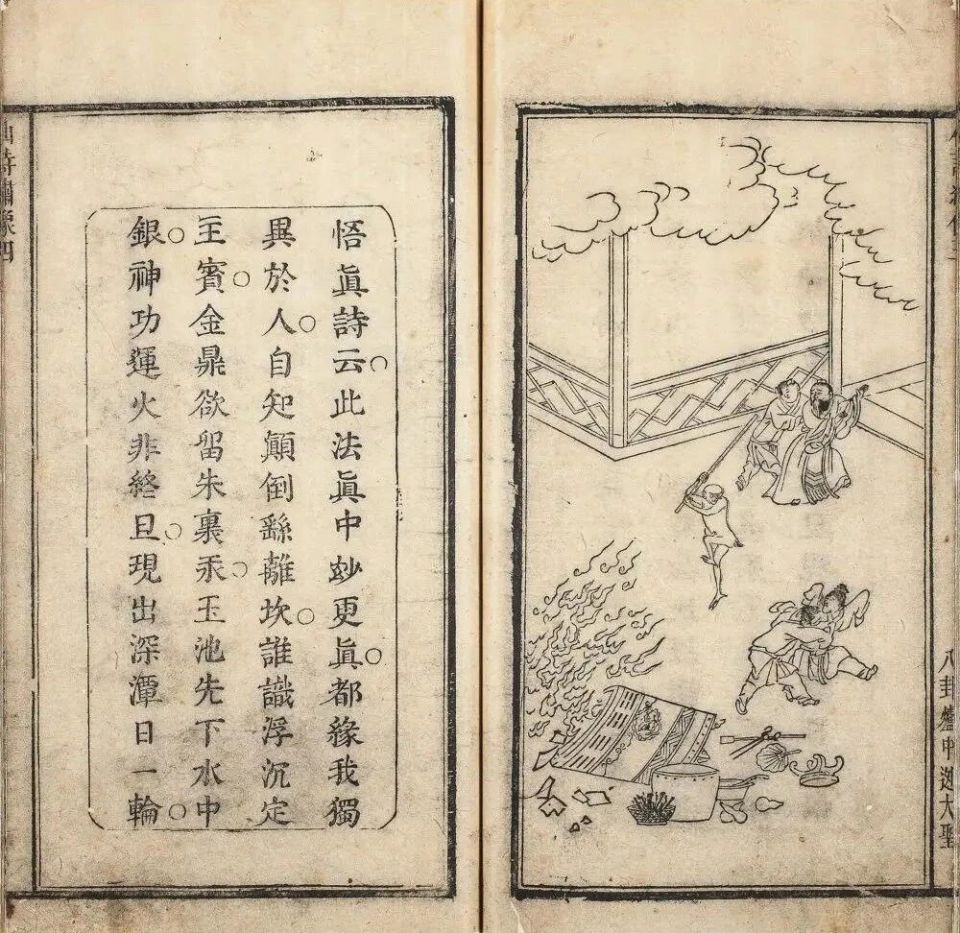 八卦爐中迯大聖
悟眞詩云○此法眞中玅更眞○都緣我獨
異於人○自知顛倒繇離坎○誰識浮沉定
主賓○金鼎欲留朱裏汞○玉池先下水中
銀○神功運火非終旦○現出深潭日一輪○
仙詩繡像四